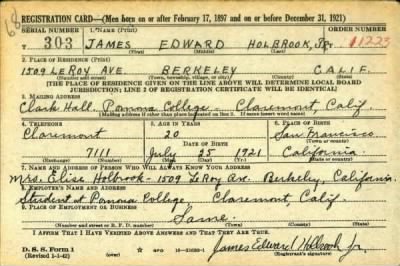 REGISTRATION CARD—(Men born on or after February 17, 1897 and on or before December 31, 1921)
SERIAL NUMBER 1. NAME (Print) ORDER NUMBER
T 303 JAMES EDWARD HOLBROOK, JR. 11223
(First) (Middle) (Last)
2. PLACE OF RESIDENCE (Print)
1509 LEROY AVE. BERKELEY CALIF.
(Number and street) (Town, township, village, or city) (County) (State)
[THE PLACE OF RESIDENCE GIVEN ON THE LINE ABOVE WILL DETERMINE LOCAL BOARD
JURISDICTION; LINE 2 OF REGISTRATION CERTIFICATE WILL BE IDENTICAL]
3. MAILING ADDRESS
Clark Hall. Pomona College - Claremont, Calif.
[Mailing address if other than place indicated on line 2. If same insert word same]
4. TELEPHONE 5. AGE IN YEARS 6. PLACE OF BIRTH
Claremont 20 San Francisco
DATE OF BIRTH (Town or county)
7111 July 25 1921 California
(Exchange) (Number) (Mo.) (Day) (Yr.) (State or country)
7. NAME AND ADDRESS OF PERSON WHO WILL ALWAYS KNOW YOUR ADDRESS
Mrs. Elise Holbrook - 1509 LeRoy Ave. Berkeley, California.
8. EMPLOYER'S NAME AND ADDRESS
Student at Pomona College Claremont, Calif.
9. PLACE OF EMPLOYMENT OR BUSINESS
Same.
(Number and street or R. F. D. number) (Town) (County) (State)
I AFFIRM THAT I HAVE VERIFIED ABOVE ANSWERS AND THAT THEY ARE TRUE.
D. S. S. Form 1
(Revised 1-1-42) (over)
James Edward Holbrook Jr.
(Registrant's signature)